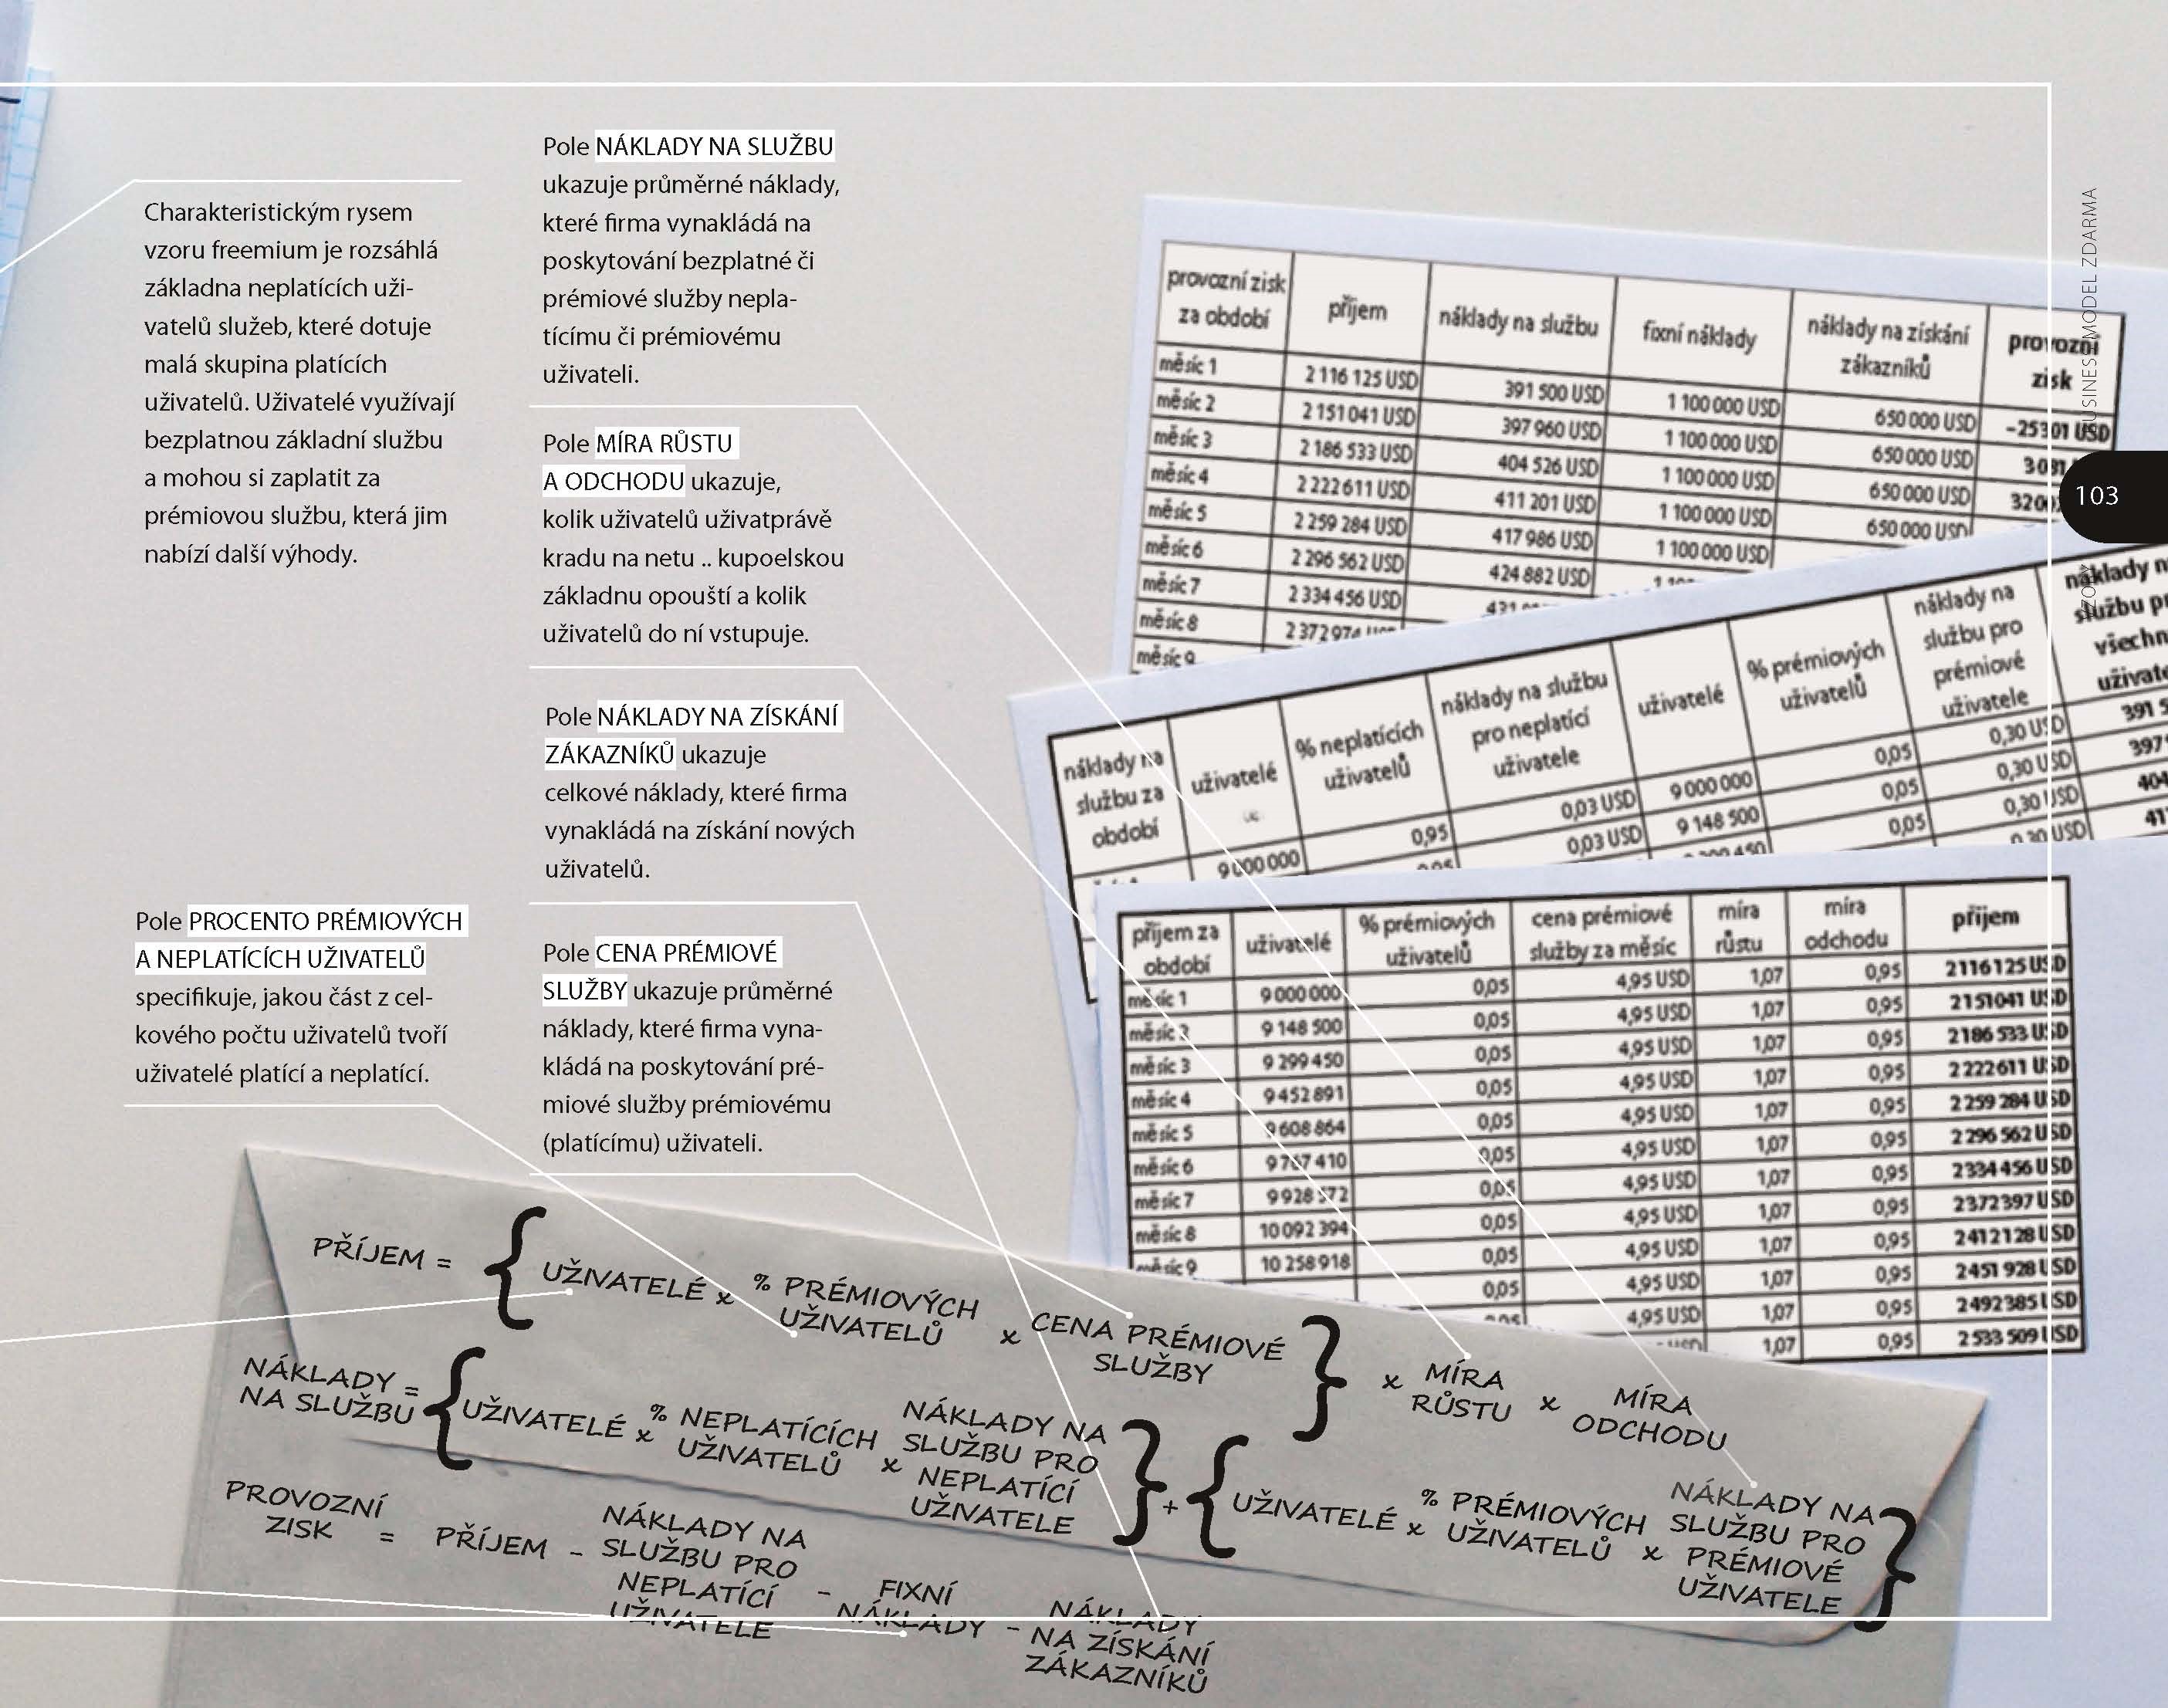 Charakteristickým rysem
vzoru freemium je rozsáhlá
základna neplatících uži-
vatelů služeb, které dotuje
malá skupina platících
uživatelů. Uživatelé využívají
bezplatnou základní službu
a mohou si zaplatit za
prémiovou službu, která jim
nabízí další výhody.
Pole PROCENTO PRÉMIOVÝCH
A NEPLATÍCÍCH UŽIVATELŮ
specifikuje, jakou část z cel-
kového počtu uživatelů tvoří
uživatelé platící a neplatící.
Pole NÁKLADY NA SLUŽBU
ukazuje průměrné náklady,
které firma vynakládá na
poskytování bezplatné či
prémiové služby nepla-
tícímu či prémiovému
uživateli.
Pole MÍRA RŮSTU
A ODCHODU ukazuje,
kolik uživatelů uživatprávě
kradu na netu .. kupoelskou
základnu opouští a kolik
uživatelů do ní vstupuje.
Pole NÁKLADY NA ZÍSKÁNÍ
ZÁKAZNÍKŮ ukazuje
celkové náklady, které firma
vynakládá na získání nových
uživatelů.
Pole CENA PRÉMIOVÉ
SLUŽBY ukazuje průměrné
náklady, které firma vyna-
kládá na poskytování pré-
miové služby prémiovému
(platícímu) uživateli.
provozní zisk za období příjem náklady na službu fixní náklady náklady na získání zákazníků provozní zisk
měsíc 1 2 116 125 USD 391 500 USD 1 100 000 USD 650 000 USD −25301 USD
měsíc 2 2 151 041 USD 397 960 USD 1 100 000 USD 650 000 USD
měsíc 3 2 186 533 USD 404 526 USD 1 100 000 USD 650 000 USD
měsíc 4 2 222 611 USD 411 201 USD 1 100 000 USD 650 000 USD
měsíc 5 2 259 284 USD 417 986 USD 1 100 000 USD
měsíc 6 2 296 562 USD 424 882 USD
měsíc 7 2 334 456 USD
měsíc 8
měsíc 9
náklady na službu za období uživatelé % neplatících uživatelů náklady na službu pro neplatící uživatele uživatelé % prémiových uživatelů náklady na službu pro prémiové uživatele
9 000 000 0,95 0,03 USD 9 000 000 0,05 0,30 USD
0,03 USD 9 148 500 0,05 0,30 USD
0,05 0,30 USD
0,30 USD
příjem za období uživatelé % prémiových uživatelů cena prémiové služby za měsíc míra růstu míra odchodu příjem
měsíc 1 9 000 000 0,05 4,95 USD 1,07 0,95 2 116 125 USD
měsíc 2 9 148 500 0,05 4,95 USD 1,07 0,95 2 151 041 USD
měsíc 3 9 299 450 0,05 4,95 USD 1,07 0,95 2 186 533 USD
měsíc 4 9 452 891 0,05 4,95 USD 1,07 0,95 2 222 611 USD
měsíc 5 9 608 864 0,05 4,95 USD 1,07 0,95 2 259 284 USD
měsíc 6 9 767 410 0,05 4,95 USD 1,07 0,95 2 296 562 USD
měsíc 7 9 928 572 0,05 4,95 USD 1,07 0,95 2 334 456 USD
měsíc 8 10 092 394 0,05 4,95 USD 1,07 0,95 2 372 397 USD
měsíc 9 10 258 918 0,05 4,95 USD 1,07 0,95 2 412 128 USD
0,05 4,95 USD 1,07 0,95 2 451 928 USD
4,95 USD 1,07 0,95 2 492 385 USD
1,07 0,95 2 533 509 USD
PŘÍJEM = { UŽIVATELÉ x % PRÉMIOVÝCH UŽIVATELŮ x CENA PRÉMIOVÉ SLUŽBY } x MÍRA RŮSTU x MÍRA ODCHODU
NÁKLADY NA SLUŽBU = { UŽIVATELÉ x % NEPLATÍCÍCH UŽIVATELŮ x NÁKLADY NA SLUŽBU PRO NEPLATÍCÍ UŽIVATELE } + { UŽIVATELÉ x % PRÉMIOVÝCH UŽIVATELŮ x NÁKLADY NA SLUŽBU PRO PRÉMIOVÉ UŽIVATELE }
PROVOZNÍ ZISK = PŘÍJEM - NÁKLADY NA SLUŽBU PRO NEPLATÍCÍ UŽIVATELE - FIXNÍ NÁKLADY - NÁKLADY NA ZÍSKÁNÍ ZÁKAZNÍKŮ
BUSINESS MODEL ZDARMA
103